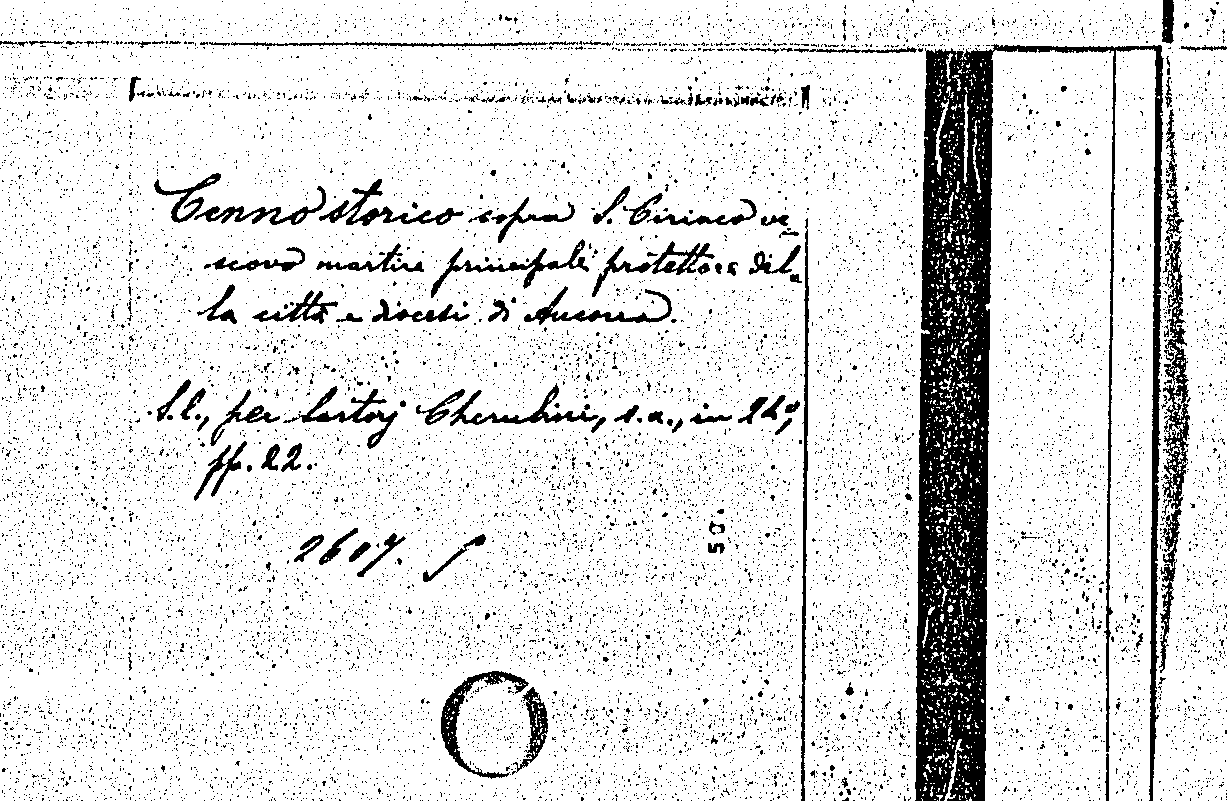 Cenno storico sopra S. Ciriaco ve-
scovo martire principale protettore del-
la città e diocesi di Ancona.
S.l., per Sartorj Cherubini, s.a., in 24°,
pp. 22.
2607. S
50.